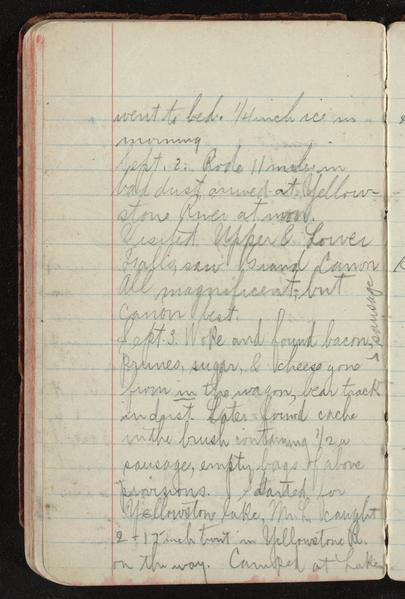 went to bed. 1/4 inch ice in
morning
Sept. 2. Rode 11 miles in
bad dust, arrived at Yellow-
stone River at noon.
Visited Upper & Lower
Falls, saw Grand Canon
All magnificent, but
Canon best.
Sept 3. Woke and found bacon, sausage
prunes, sugar, & cheese gone
from in the wagon, bear track
in dust. Later found cache
in the brush containing 1/2 a
sausage, empty bags of above
provisions. Started for
Yellowstow Lake, Mr. L caught
2 - 17 inch trout in Yellowstone R.
on the way. Camped at Lake